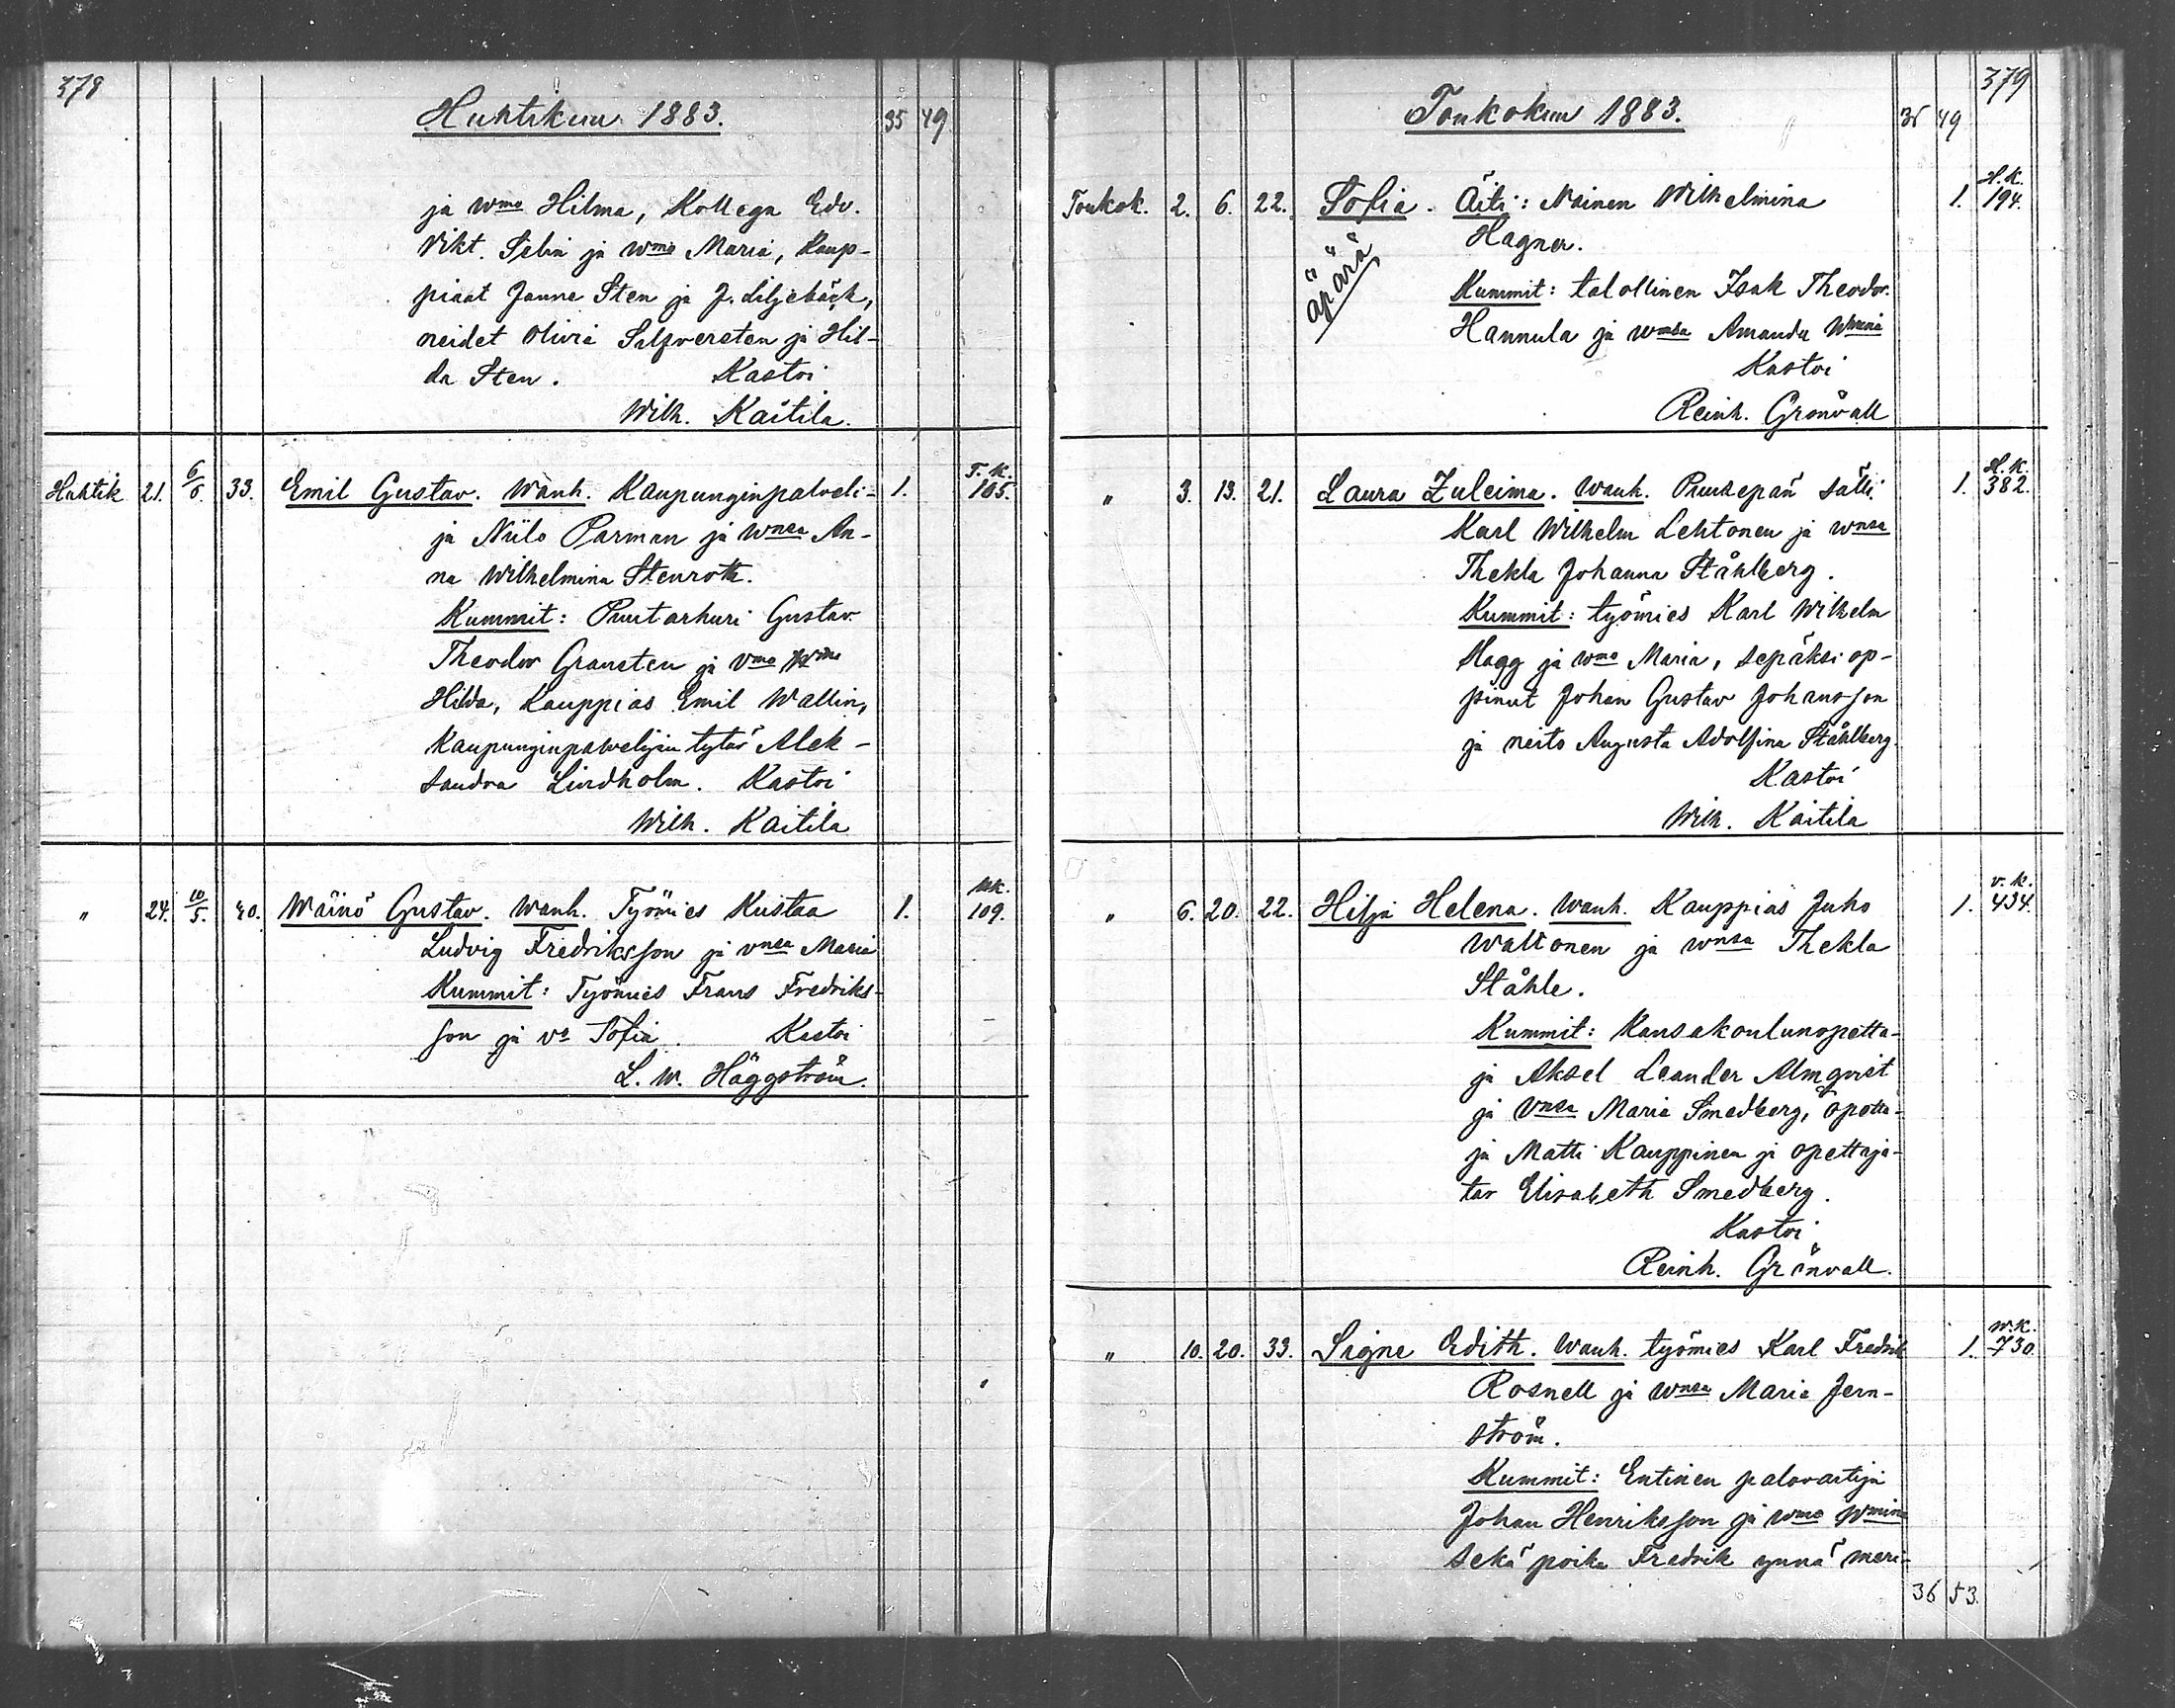 378
Huhtikuu 1883. 35 49
ja wmo Hilma, Kollega Edv.
Vikt. Selin ja wmo Maria, Kaup-
piaat Janne Sten ja J. Liljebäck,
neidet Olivia Salfversten ja Hil-
da Sten. Kastoi
Wilh. Kaitila.
Huhtik 21. 6/6. 33. Emil Gustav. Wanh. Kaupunginpalveli- 1. T.K. 105.
ja Niilo Parman ja wnsa An-
na Wilhelmina Stenroth.
Kummit: Puutarhuri Gustav
Theodor Gransten ja vmo Wma
Hilda, Kauppias Emil Wallin,
Kaupunginpalvelijan tytär Alek-
sandra Lindholm. Kastoi
Wilh. Kaitila
" 24. 10/5. 40. Wäinö Gustav. Wanh. Työmies Kustaa 1. 109.
Ludvig Fredriksson ja vnsa Maria
Kummit: Työmies Frans Fredriks-
son ja vo Sofia. Kastoi
L. W. Häggström.
379
Toukokuu 1883. 35 49
Toukok. 2. 6. 22. Sofia. Äiti: Nainen Wilhelmina 1. H.K. 194.
Hagner.
äpärä
Kummit: talollinen Isak Theodor
Hannula ja wmsa Amanda Wmina
Kastoi
Reinh. Grönvall
" 3. 13. 21. Laura Zuleima. Wanh. Puusepän sälli 1. H.K. 382.
Karl Wilhelm Lehtonen ja wnsa
Thekla Johanna Ståhlberg.
Kummit: työmies Karl Wilhelm
Hagg ja wmo Maria, sepäksi op-
pinut Johan Gustav Johansson
ja neito Augusta Adolfina Ståhlberg.
Kastoi
Wilh. Kaitila
" 6. 20. 22. Hilja Helena. Wanh. Kauppias Juho 1. v.K. 434.
Waltonen ja wnsa Thekla
Ståhle.
Kummit: Kansakoulunopetta-
ja Aksel Leander Almqvist
ja vnsa Maria Smedberg, opetta-
ja Matti Kauppinen ja opettaja-
tar Elisabeth Smedberg.
Kastoi
Reinh. Grönvall.
" 10. 20. 33. Signe Edith. Wanh. työmies Karl Fredrik 1. W.K. 730.
Rosnell ja wnsa Maria Jern-
ström.
Kummit: Entinen palovartija
Johan Henriksson ja wmo Wmina
sekä poika Fredrik ynnä meri-
36 53.